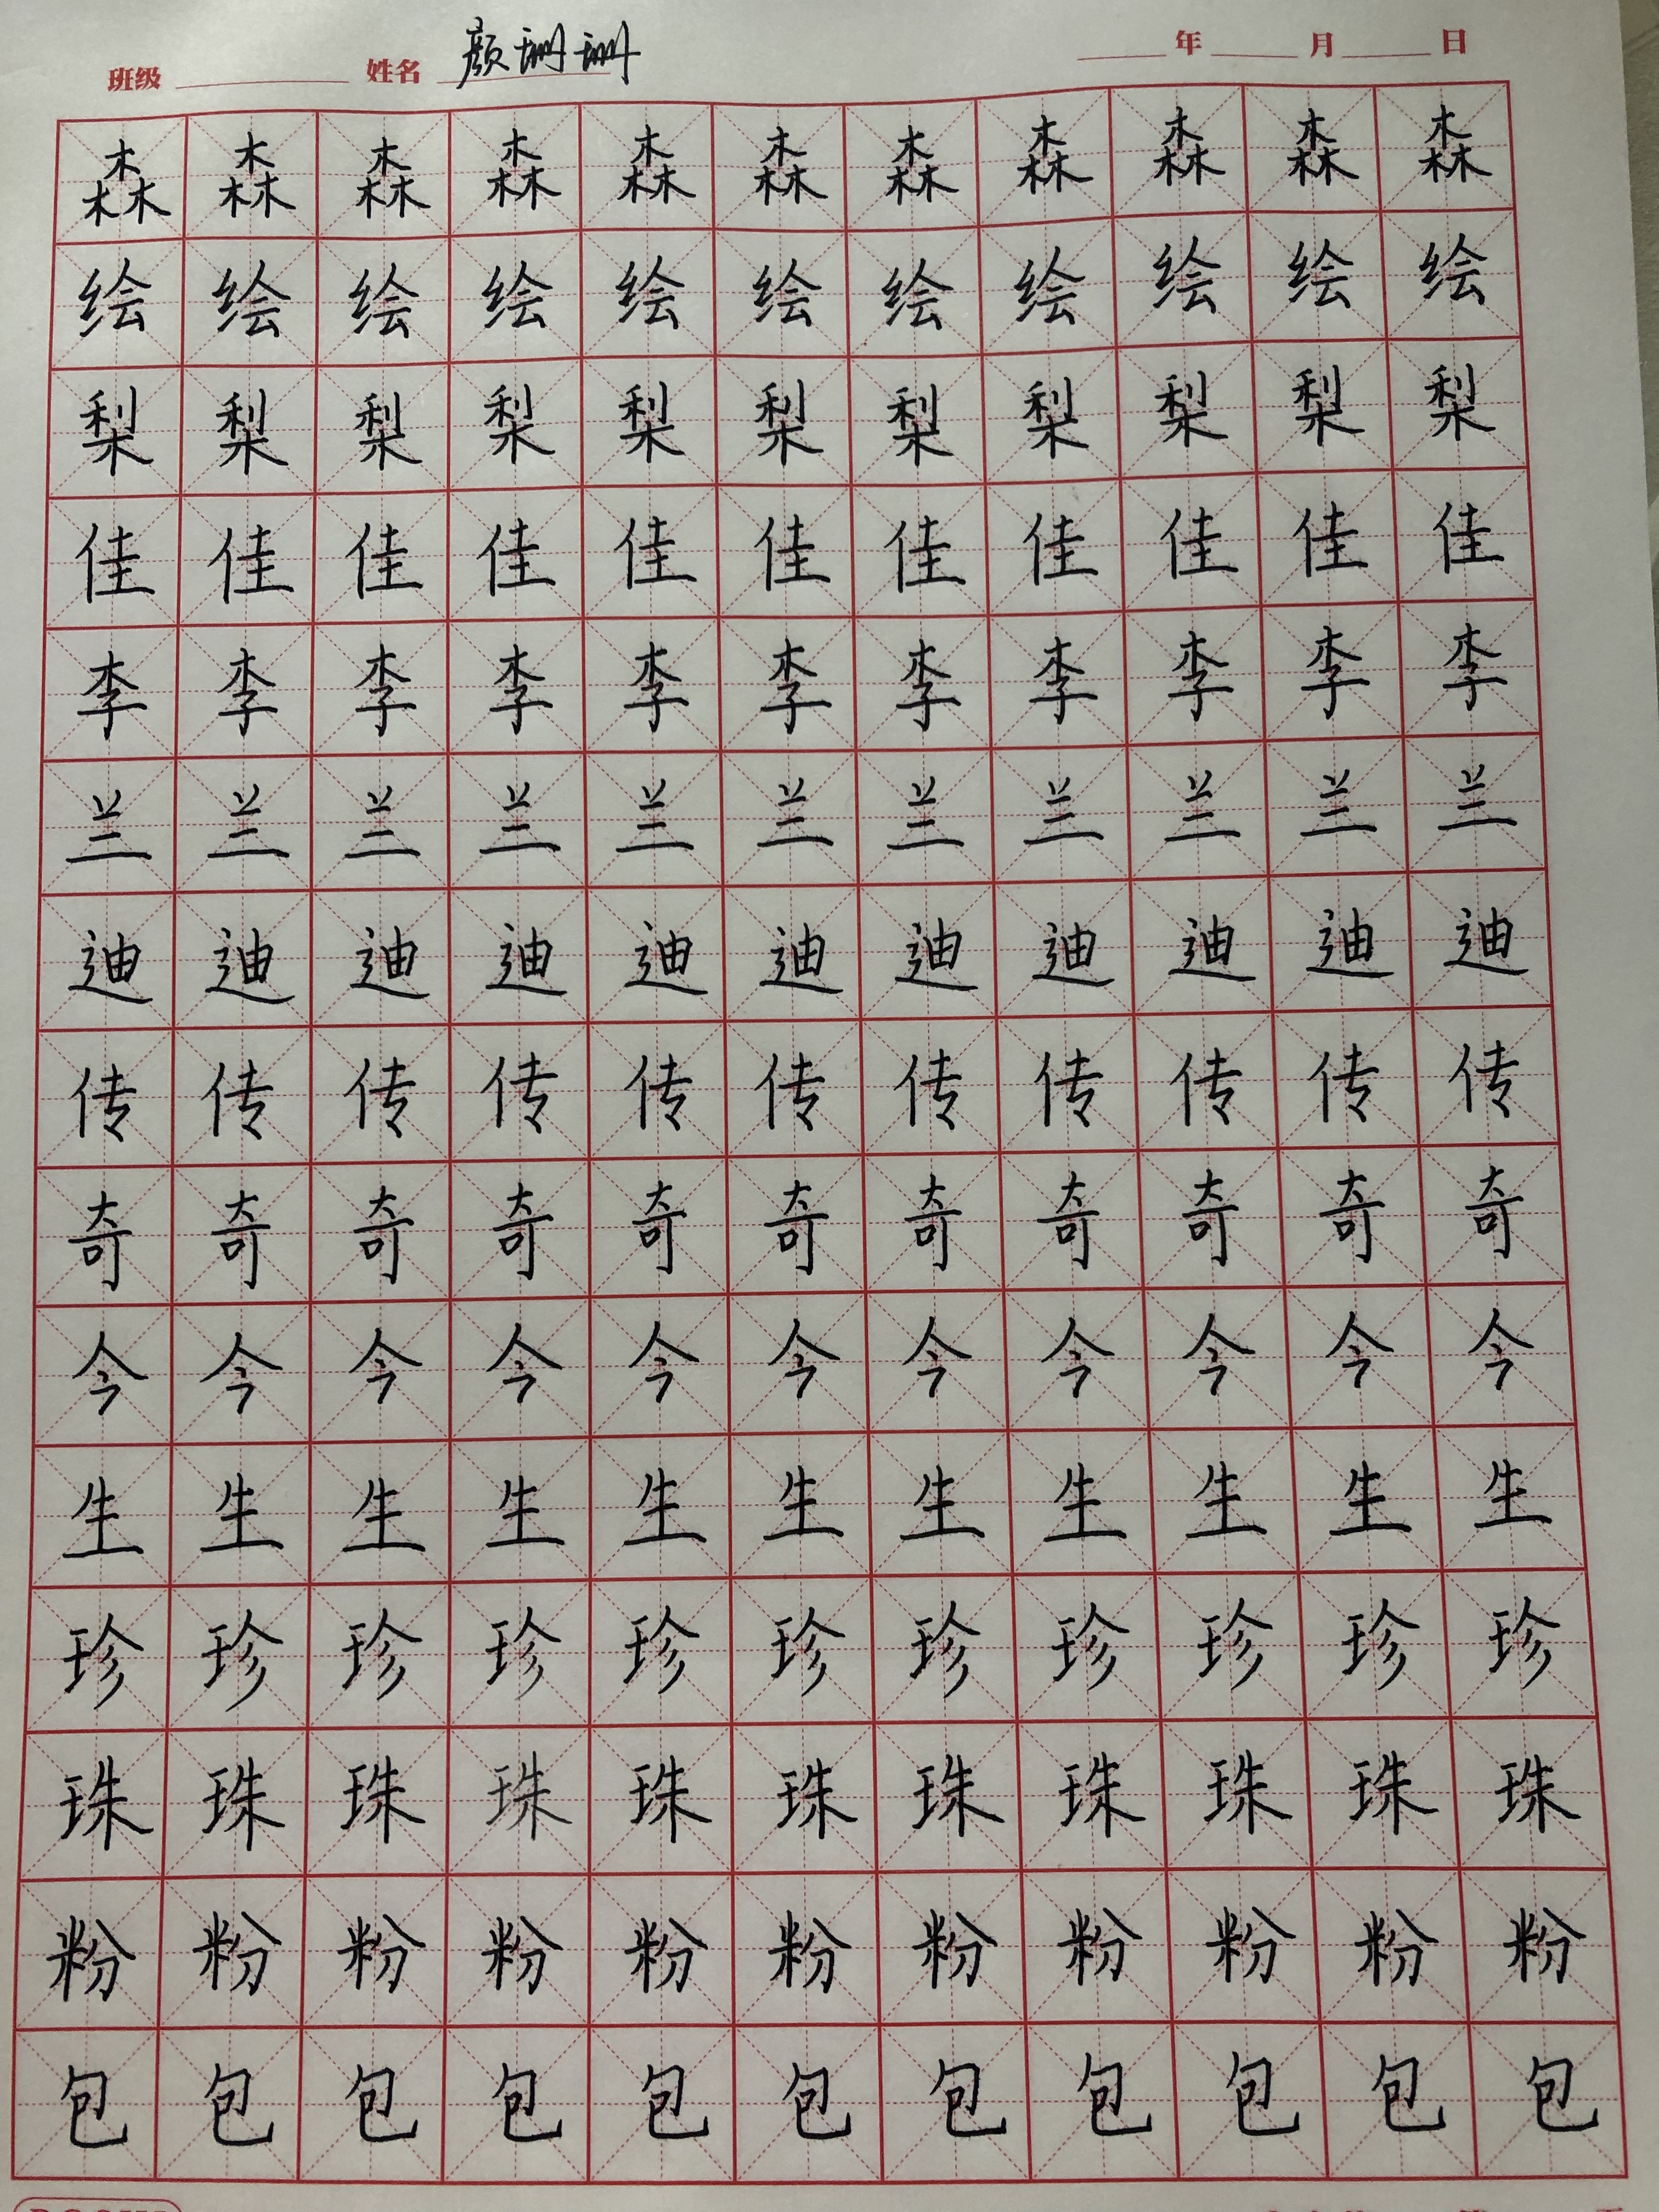 班级 姓名 颜珊珊 年 月 日
森森森森森森森森森森森
绘绘绘绘绘绘绘绘绘绘绘
梨梨梨梨梨梨梨梨梨梨梨
佳佳佳佳佳佳佳佳佳佳佳
李李李李李李李李李李李
兰兰兰兰兰兰兰兰兰兰兰
迪迪迪迪迪迪迪迪迪迪迪
传传传传传传传传传传传
奇奇奇奇奇奇奇奇奇奇奇
今今今今今今今今今今今
生生生生生生生生生生生
珍珍珍珍珍珍珍珍珍珍珍
珠珠珠珠珠珠珠珠珠珠珠
粉粉粉粉粉粉粉粉粉粉粉
包包包包包包包包包包包